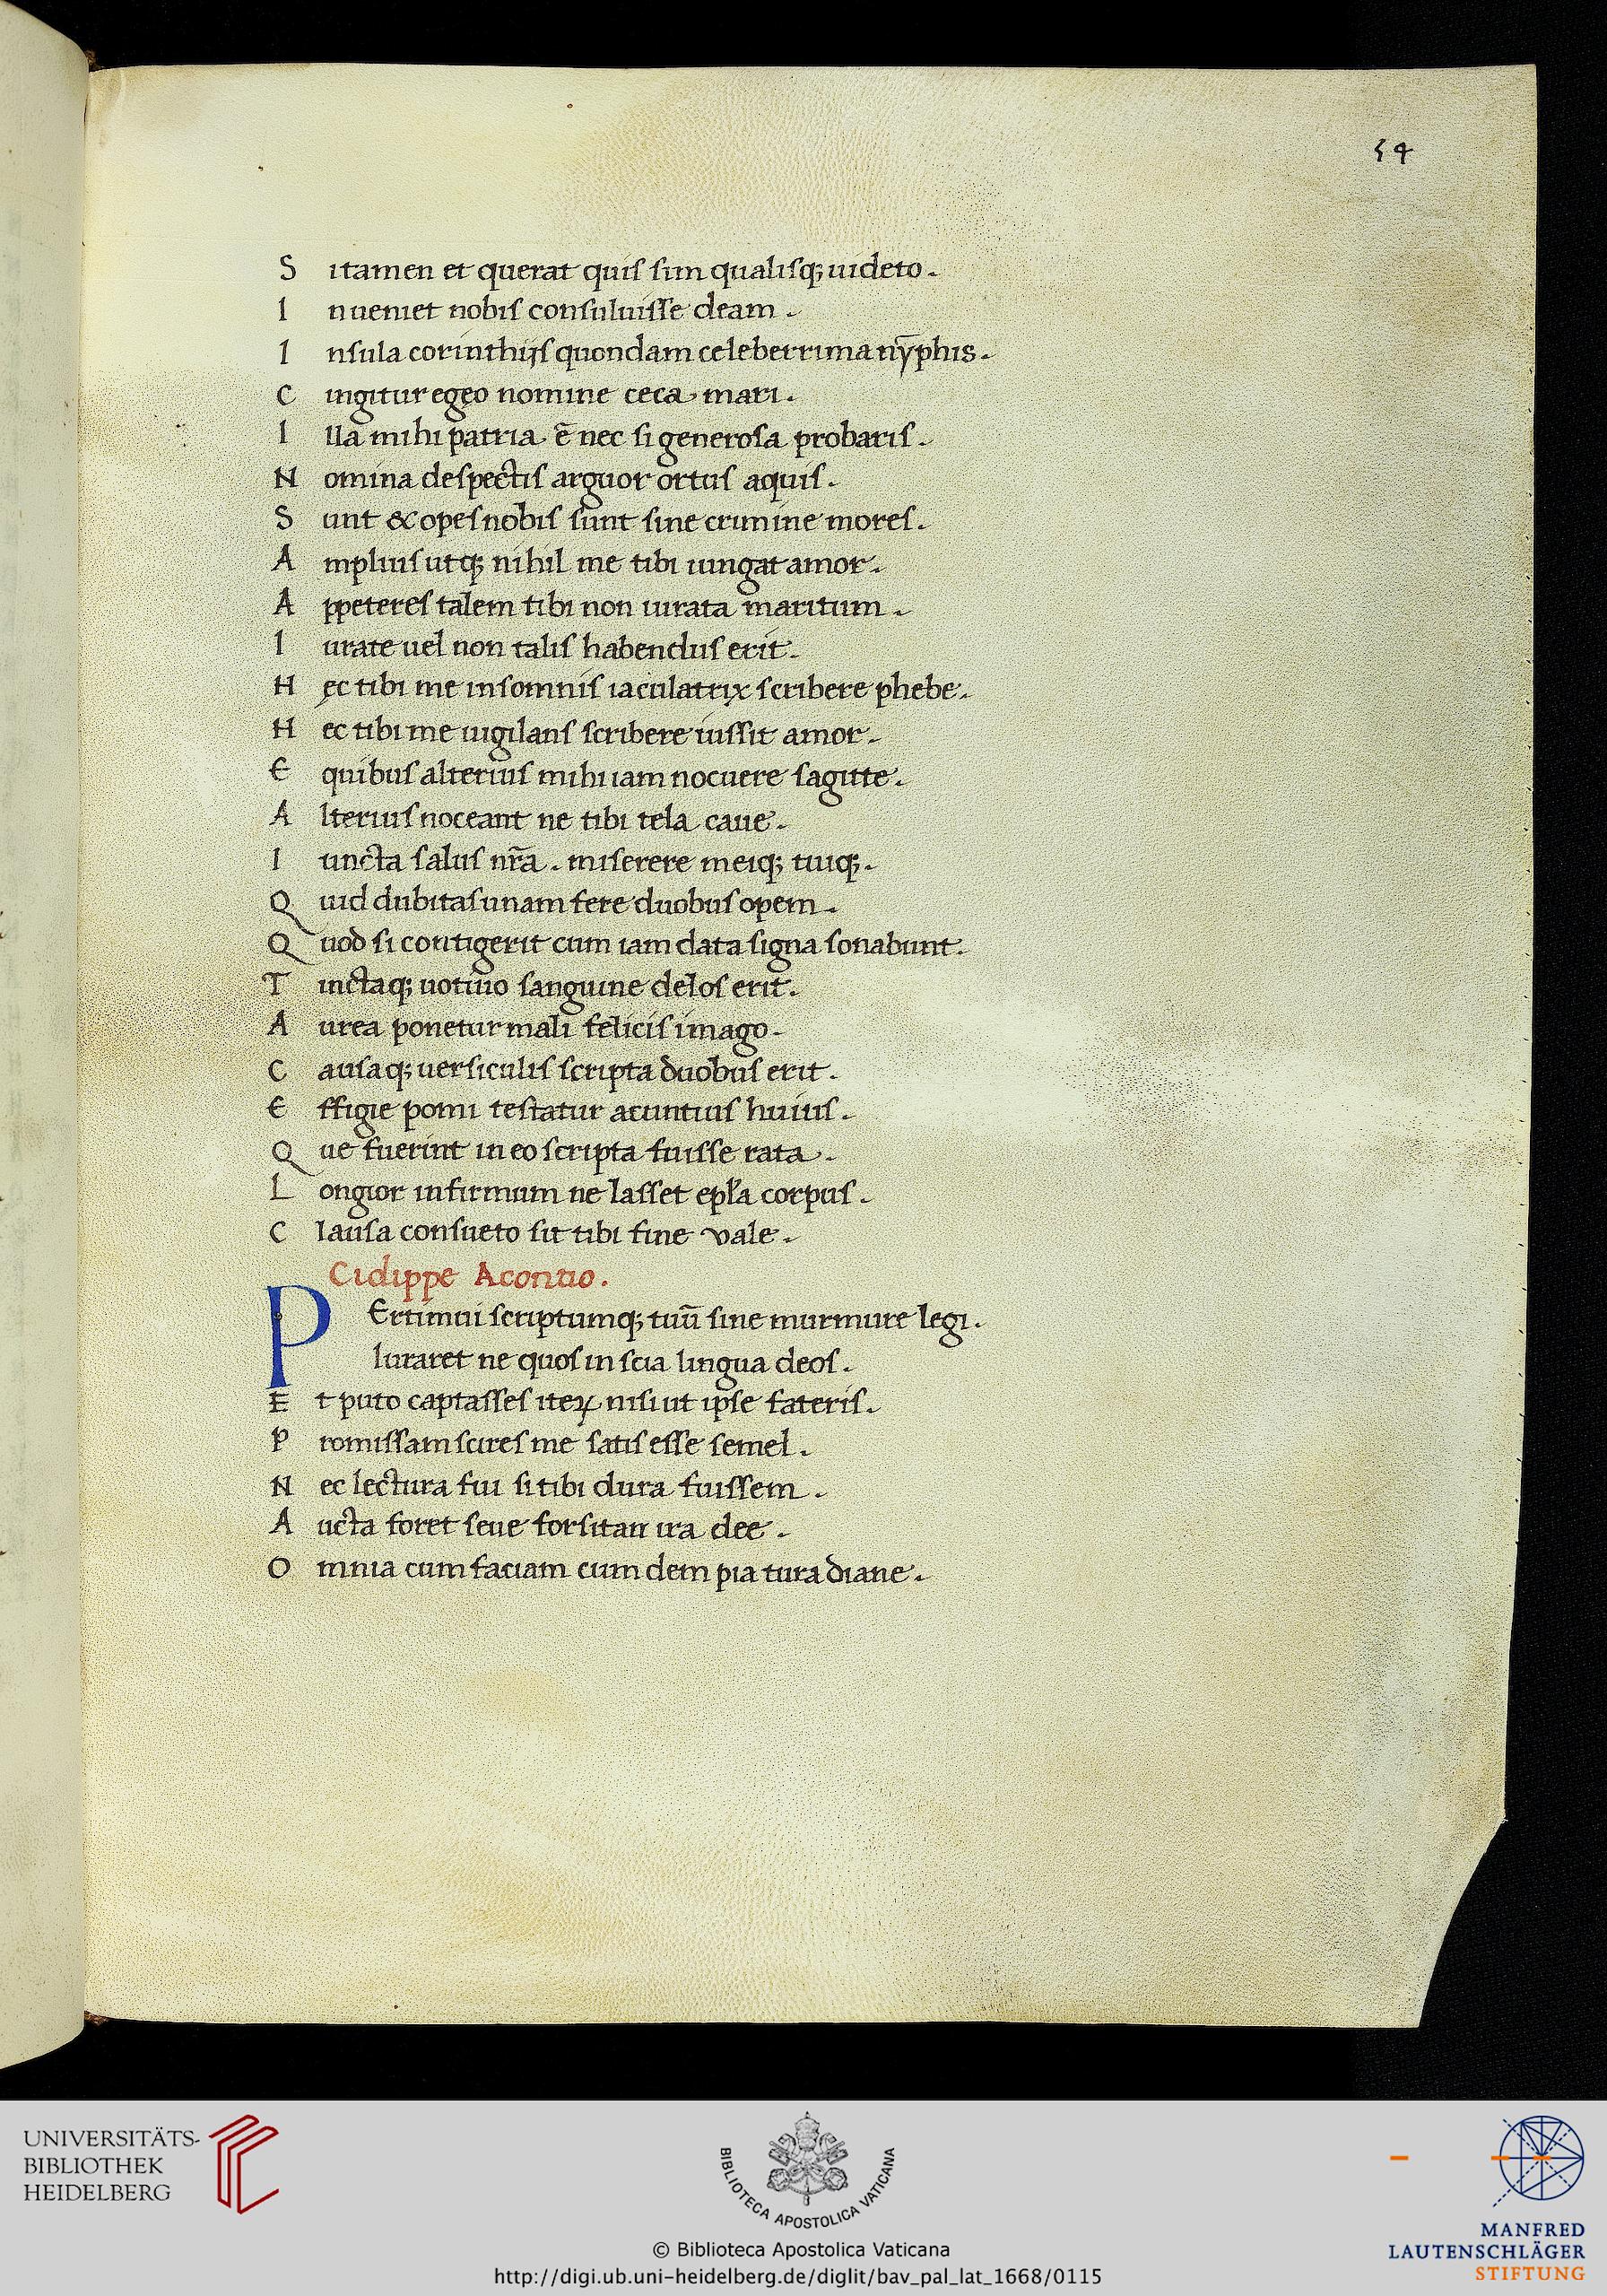 54
S itamen et querat quis sim qualisq; uideto.
I nueniet nobis consuluisse deam.
I nsula corinthijs quondam celeberrima nȳphis.
C ingitur egęo nomine ceca mari.
I lla mihi patria ē nec si generosa probaris.
N omina despectis arguor ortus aquis.
S unt & opes nobis sunt sine crimine mores.
A mplius utq; nihil me tibi iungat amor.
A ppeteres talem tibi non iurata maritum.
I urate uel non talis habendus erit.
H ęc tibi me insomnis iaculatrix scribere phebe.
H ec tibi me uigilans scribere iussit amor.
E quibus alterius mihi iam nocuere sagitte.
A lterius noceant ne tibi tela caue.
I uncta salus nr̄a. miserere meiq; tuiq;.
Q uid dubitas unam fere duobus opem.
Q uod si contigerit cum iam data signa sonabunt.
T inctaq; uotiuo sanguine delos erit.
A urea ponetur mali felicis imago.
C ausaq; uersiculis scripta duobus erit.
E ffigie pomi testatur acuntius huius.
Q ue fuerint in eo scripta fuisse rata.
L ongior infirmum ne lasset epl̄a corpus.
C lausa consueto sit tibi fine vale.
Cidippe Acontio.
P Ertimui scriptumq; tuū sine murmure legi.
Iuraret ne quos in scia lingua deos.
E t puto captasses iteꝝ nisi ut ipse fateris.
P romissam scires me satis esse semel.
N ec lectura fui si tibi dura fuissem.
A ucta foret seue forsitan ira dee.
O mnia cum faciam cum dem pia tura diane.
UNIVERSITÄTS-
BIBLIOTHEK
HEIDELBERG
BIBLIOTECA APOSTOLICA VATICANA
© Biblioteca Apostolica Vaticana
http://digi.ub.uni-heidelberg.de/diglit/bav_pal_lat_1668/0115
MANFRED
LAUTENSCHLÄGER
STIFTUNG